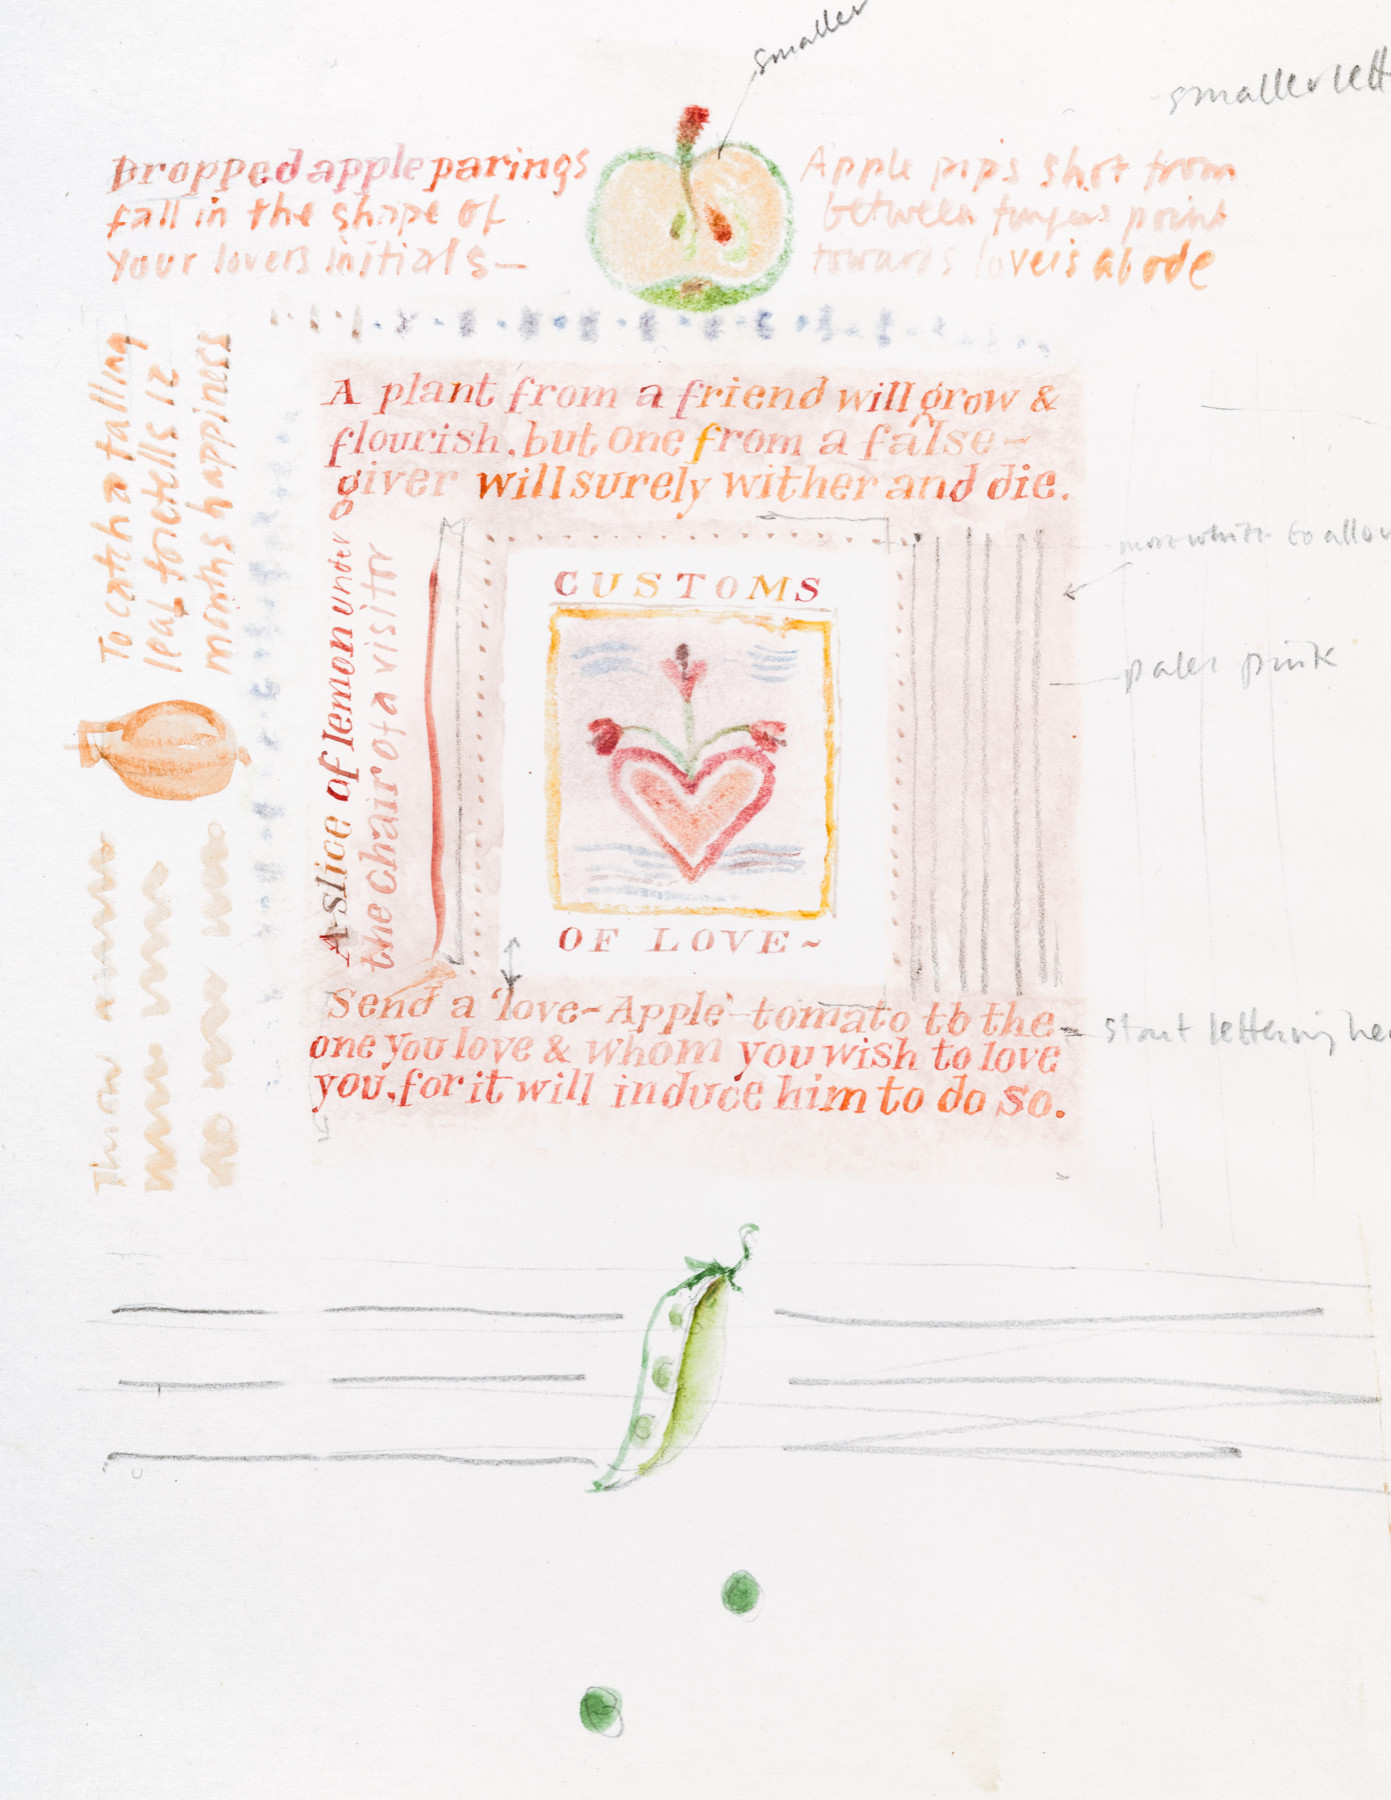 smaller
smaller
Dropped apple parings
fall in the shape of
your lovers initials—
Apple pips shot from
between fingers point
towards lovers abode
To catch a falling
leaf foretells 12
months happiness
A plant from a friend will grow &
flourish, but one from a false~
giver will surely wither and die.
A slice of lemon under
the chair of a visitor
CUSTOMS
OF LOVE~
more white to allow
paler pink
Send a 'love~Apple' tomato to the
one you love & whom you wish to love
you, for it will induce him to do so.
start lettering
Throw a